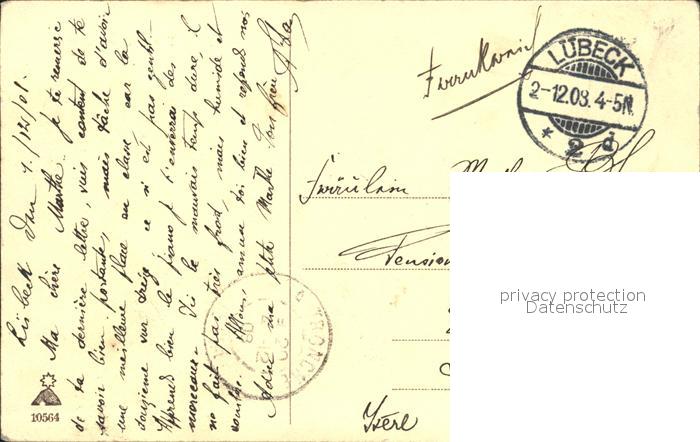 Lübeck den 1./12/08.
Ma chère Marthe. Je te remercie
de ta dernière lettre, suis content de te
savoir bien portante, mais fâché d'avoir
une meilleure place en classe car la
douzième sur treize ce n'est pas gentil.
Apprends bien le piano je t'enverrai des
morceaux. Ici le mauvais temps dure, il
ne fait pas très froid, mais humide et
Allons amuse toi bien et réponds moi
ma petite Marthe Ton frère
10564
Frankreich
LÜBECK
2-12.08.4-5N.
* 2 d
Fräulein
Pension
Isère
privacy protection
Datenschutz